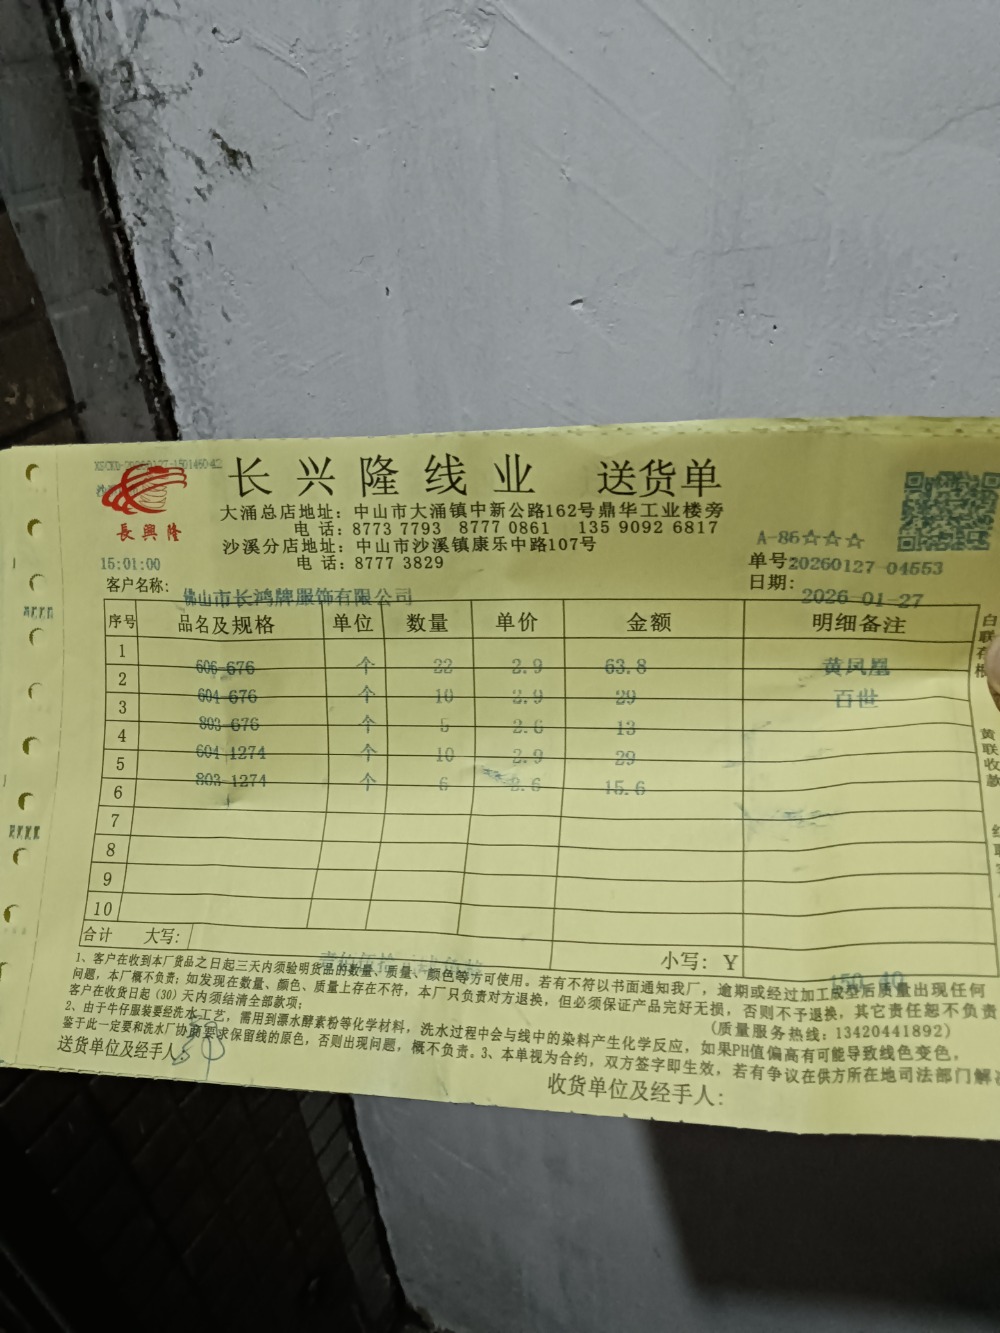 长兴隆线业 送货单
大涌总店地址：中山市大涌镇中新公路162号鼎华工业楼旁
电 话：8773 7793 8777 0861 135 9092 6817
沙溪分店地址：中山市沙溪镇康乐中路107号
电 话：8777 3829
長興隆
A-86☆☆☆
单号20260127-04553
日期：2026-01-27
15:01:00
客户名称：佛山市长鸿牌服饰有限公司
序号 品名及规格 单位 数量 单价 金额 明细备注
1 606-676 个 22 2.9 63.8 黄凤凰
2 604-676 个 10 2.9 29 百世
3 803-676 个 5 2.6 13
4 604-1274 个 10 2.9 29
5 803-1274 个 6 2.6 15.6
6
7
8
9
10
合计 大写： 小写：Y 150.40
1、客户在收到本厂货品之日起三天内须验明货品的数量、质量、颜色等方可使用。若有不符以书面通知我厂，逾期或经过加工成型后质量出现任何
问题，本厂概不负责；如发现在数量、颜色、质量上存在不符，本厂只负责对方退换，但必须保证产品完好无损，否则不予退换，其它责任恕不负责
客户在收货日起（30）天内须结清全部款项；
（质量服务热线：13420441892）
2、由于牛仔服装要经洗水工艺，需用到漂水酵素粉等化学材料，洗水过程中会与线中的染料产生化学反应，如果PH值偏高有可能导致线色变色，
鉴于此一定要和洗水厂协调要求保留线的原色，否则出现问题，概不负责。3、本单视为合约，双方签字即生效，若有争议在供方所在地司法部门解
送货单位及经手人：
收货单位及经手人：
白联存根
黄联收款